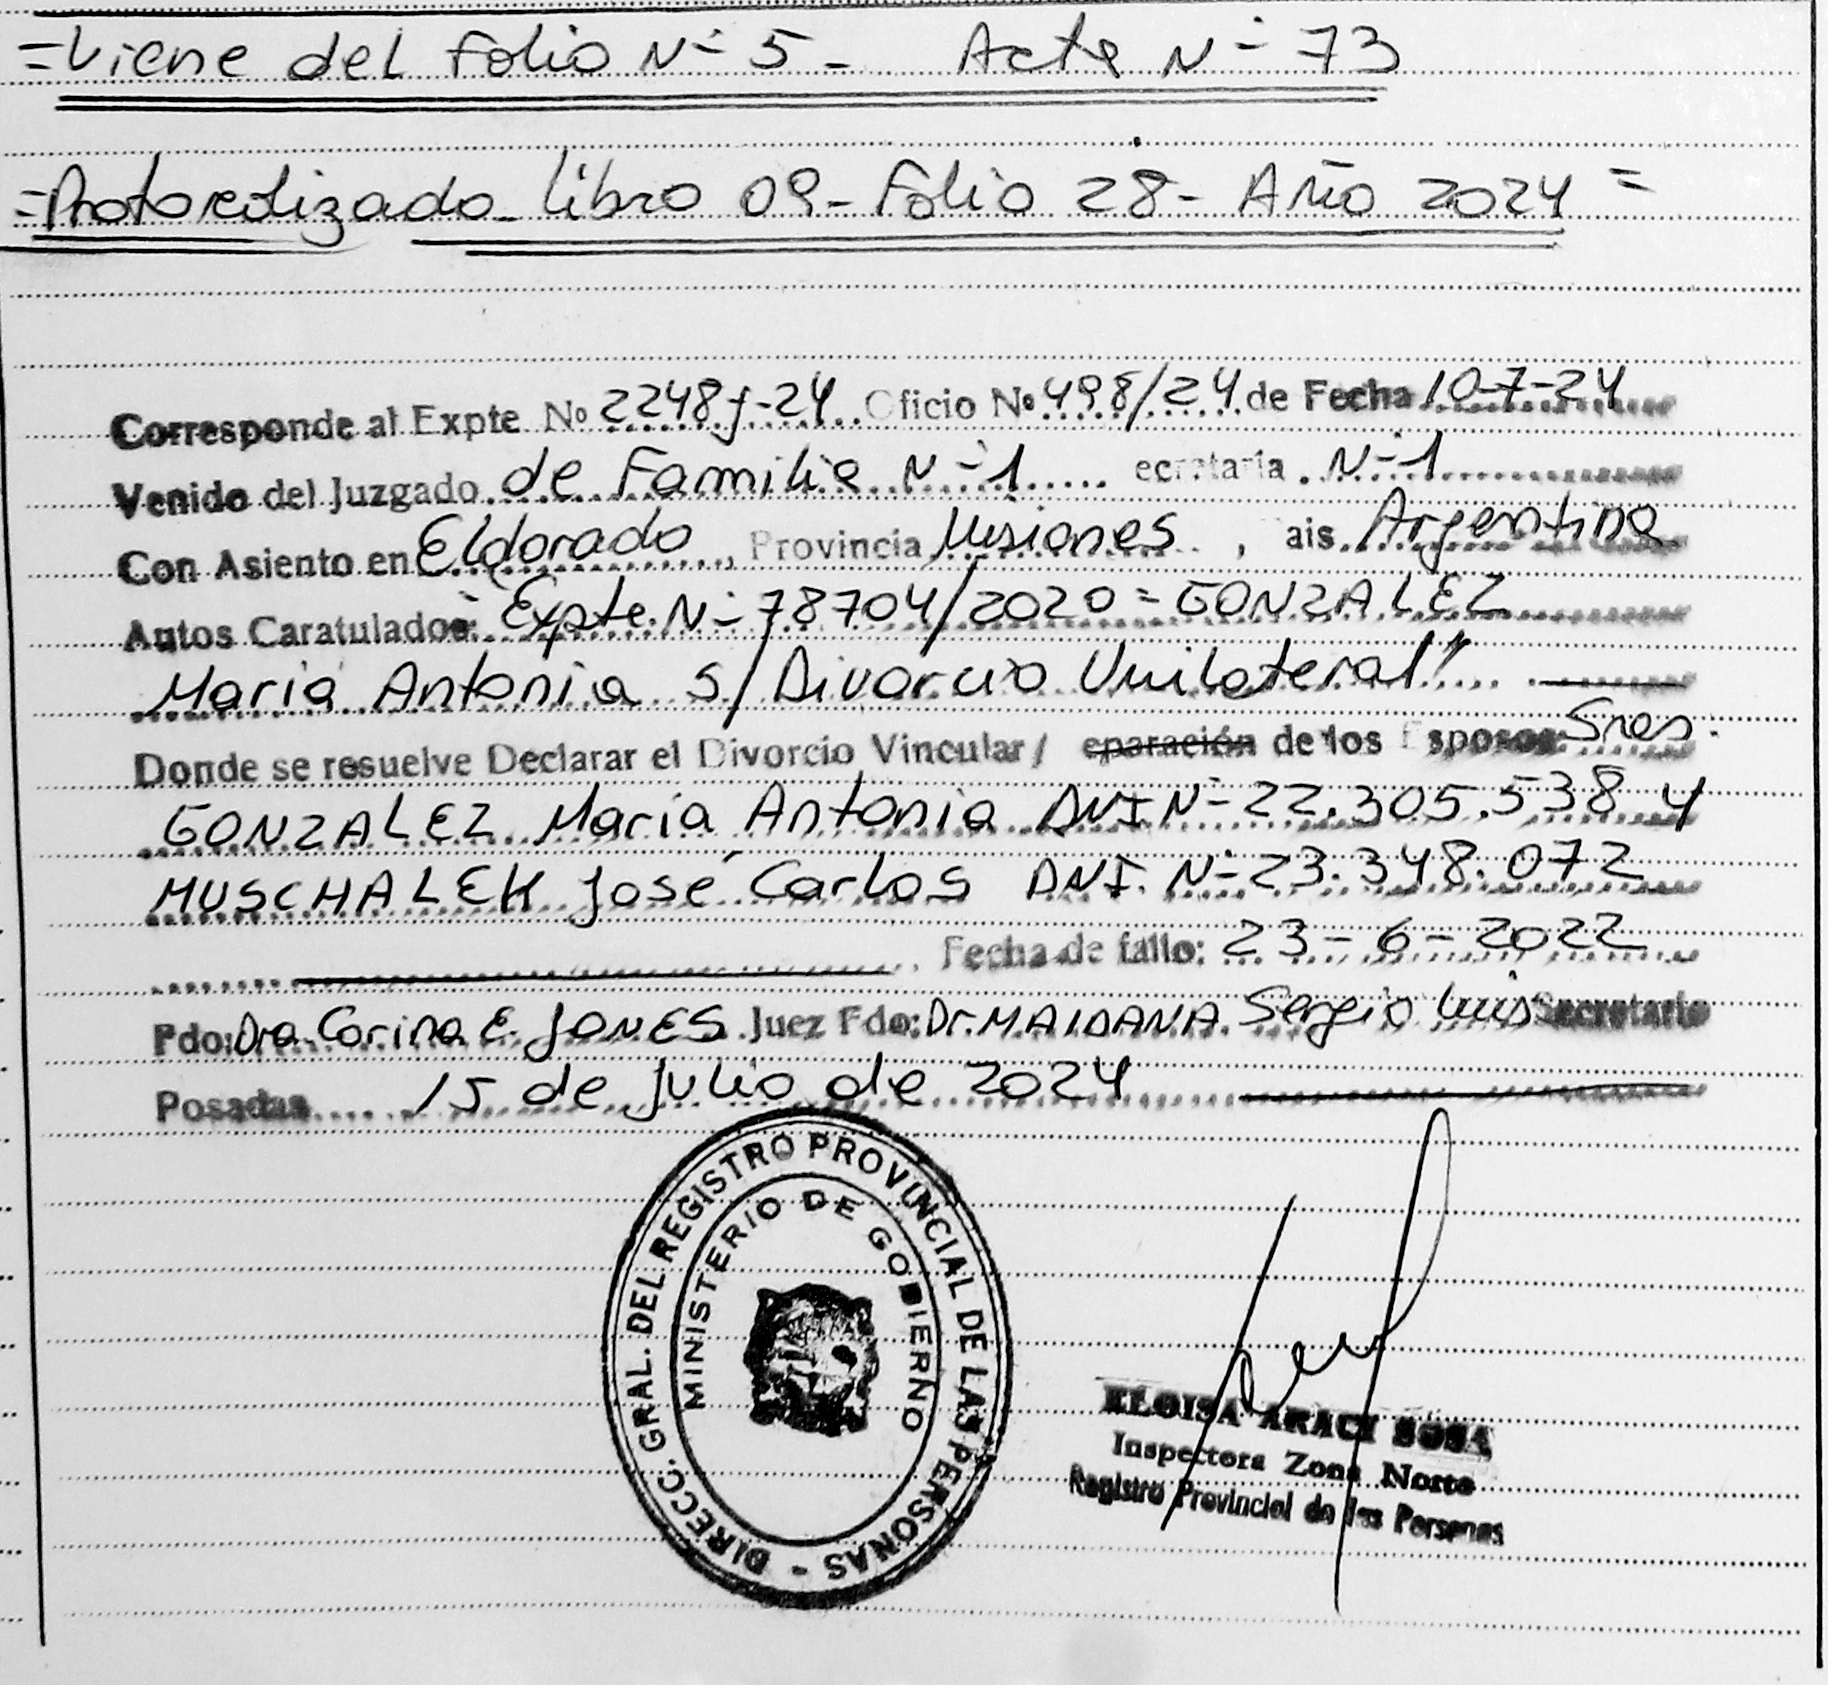 =Viene del folio N- 5 - Acta N- 73
=Protocolizado libro 09 - Folio 28 - Año 2024 =
Corresponde al Expte Nº 2248 j-24 Oficio Nº 498/24 de Fecha 10-7-24
Venido del Juzgado de Familia N-1 ecretaria N-1
Con Asiento en Eldorado, Provincia Misiones, ais Argentina
Autos Caratulados: Expte. N- 78704/2020 = GONZALEZ
María Antonia s/Divorcio Unilateral"
Donde se resuelve Declarar el Divorcio Vincular/ eparación de los Esposos Sres.
GONZALEZ María Antonia DNI N- 22.305.538 y
MUSCHALEK José Carlos DNI. N- 23.348.072
Fecha de fallo: 23-6-2022
Fdo: Dra. Corina E. JONES Juez Fdo: Dr. MAIDANA Sergio Luis Secretario
Posadas 15 de Julio de 2024
DIRECC. GRAL. DEL REGISTRO PROVINCIAL DE LAS PERSONAS -
MINISTERIO DE GOBIERNO
ELOISA ARACI SOSA
Inspectora Zona Norte
Registro Provincial de las Personas